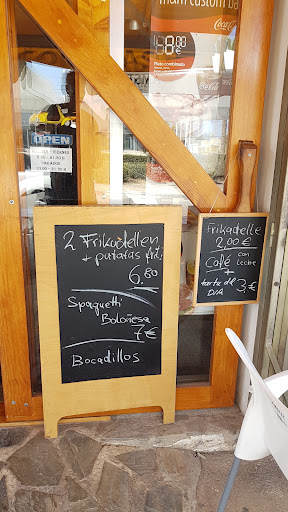 main custom ba
Coca-Cola
8'00
€
Plato combinado
OPEN
2 Frikadellen
+ patatas frit.
6.80
Spaguetti
Boloñesa
7€
Bocadillos
Frikadelle
2'00€
Café con
leche
+
tarta del
DIA 3€